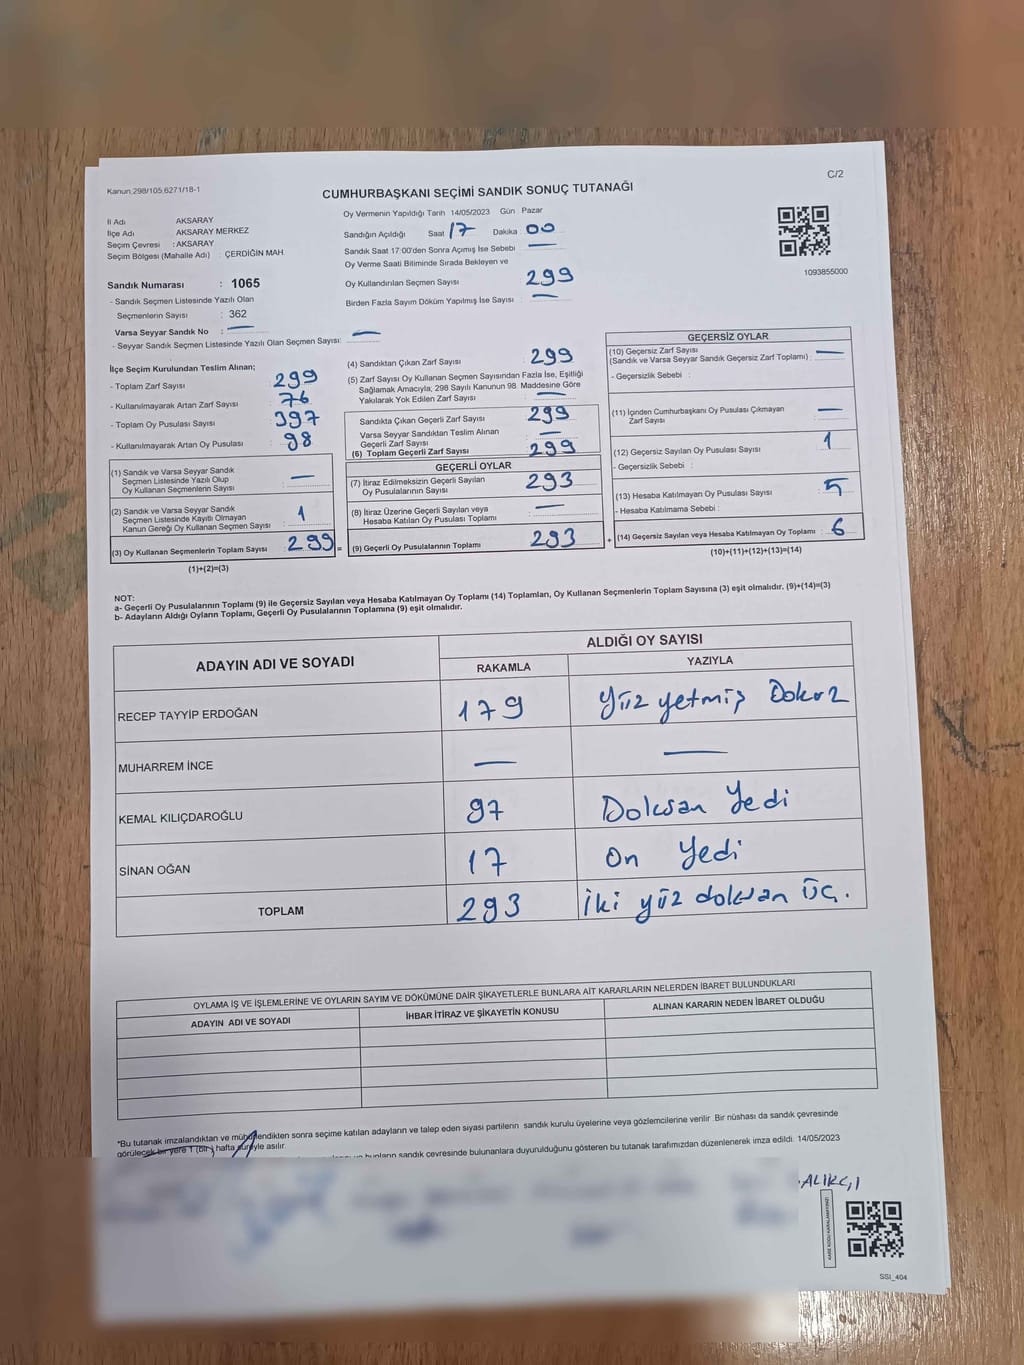 Kanun.298/105,6271/18-1
C/2
CUMHURBAŞKANI SEÇİMİ SANDIK SONUÇ TUTANAĞI
İl Adı AKSARAY
İlçe Adı AKSARAY MERKEZ
Seçim Çevresi : AKSARAY
Seçim Bölgesi (Mahalle Adı) : ÇERDİĞİN MAH
Sandık Numarası : 1065
- Sandık Seçmen Listesinde Yazılı Olan
Seçmenlerin Sayısı : 362
Varsa Seyyar Sandık No : —
- Seyyar Sandık Seçmen Listesinde Yazılı Olan Seçmen Sayısı: —
Oy Vermenin Yapıldığı Tarih 14/05/2023 Gün Pazar
Sandığın Açıldığı Saat 17 Dakika 00
Sandık Saat 17:00'den Sonra Açımış İse Sebebi : —
Oy Verme Saati Bitiminde Sırada Bekleyen ve
Oy Kullandırılan Seçmen Sayısı : 299
Birden Fazla Sayım Döküm Yapılmış İse Sayısı : —
1093855000
İlçe Seçim Kurulundan Teslim Alınan;
- Toplam Zarf Sayısı : 299
- Kullanılmayarak Artan Zarf Sayısı : 76
- Toplam Oy Pusulası Sayısı : 397
- Kullanılmayarak Artan Oy Pusulası : 98
(1) Sandık ve Varsa Seyyar Sandık
Seçmen Listesinde Yazılı Olup
Oy Kullanan Seçmenlerin Sayısı : —
(2) Sandık ve Varsa Seyyar Sandık
Seçmen Listesinde Kayıtlı Olmayan
Kanun Gereği Oy Kullanan Seçmen Sayısı : 1
(3) Oy Kullanan Seçmenlerin Toplam Sayısı : 299 =
(1)+(2)=(3)
(4) Sandıktan Çıkan Zarf Sayısı : 299
(5) Zarf Sayısı Oy Kullanan Seçmen Sayısından Fazla İse, Eşitliği
Sağlamak Amacıyla; 298 Sayılı Kanunun 98. Maddesine Göre
Yakılarak Yok Edilen Zarf Sayısı : —
Sandıkta Çıkan Geçerli Zarf Sayısı : 299
Varsa Seyyar Sandıktan Teslim Alınan
Geçerli Zarf Sayısı : —
(6) Toplam Geçerli Zarf Sayısı : 299
GEÇERLİ OYLAR
(7) İtiraz Edilmeksizin Geçerli Sayılan
Oy Pusulalarının Sayısı : 293
(8) İtiraz Üzerine Geçerli Sayılan veya
Hesaba Katılan Oy Pusulası Toplamı : —
(9) Geçerli Oy Pusulalarının Toplamı : 293 +
GEÇERSİZ OYLAR
(10) Geçersiz Zarf Sayısı
(Sandık ve Varsa Seyyar Sandık Geçersiz Zarf Toplamı) : —
- Geçersizlik Sebebi :
(11) İçinden Cumhurbaşkanı Oy Pusulası Çıkmayan
Zarf Sayısı : —
(12) Geçersiz Sayılan Oy Pusulası Sayısı : 1
- Geçersizlik Sebebi :
(13) Hesaba Katılmayan Oy Pusulası Sayısı : 5
- Hesaba Katılmama Sebebi :
(14) Geçersiz Sayılan veya Hesaba Katılmayan Oy Toplamı : 6
(10)+(11)+(12)+(13)=(14)
NOT:
a- Geçerli Oy Pusulalarının Toplamı (9) ile Geçersiz Sayılan veya Hesaba Katılmayan Oy Toplamı (14) Toplamları, Oy Kullanan Seçmenlerin Toplam Sayısına (3) eşit olmalıdır. (9)+(14)=(3)
b- Adayların Aldığı Oyların Toplamı, Geçerli Oy Pusulalarının Toplamına (9) eşit olmalıdır.
ADAYIN ADI VE SOYADI ALDIĞI OY SAYISI
RAKAMLA YAZIYLA
RECEP TAYYİP ERDOĞAN 179 Yüz yetmiş Dokuz
MUHARREM İNCE — —
KEMAL KILIÇDAROĞLU 97 Doksan Yedi
SİNAN OĞAN 17 On Yedi
TOPLAM 293 İki yüz doksan üç.
OYLAMA İŞ VE İŞLEMLERİNE VE OYLARIN SAYIM VE DÖKÜMÜNE DAİR ŞİKAYETLERLE BUNLARA AİT KARARLARIN NELERDEN İBARET BULUNDUKLARI
ADAYIN ADI VE SOYADI İHBAR İTİRAZ VE ŞİKAYETİN KONUSU ALINAN KARARIN NEDEN İBARET OLDUĞU
*Bu tutanak imzalandıktan ve mühürlendikten sonra seçime katılan adayların ve talep eden siyasi partilerin sandık kurulu üyelerine veya gözlemcilerine verilir .Bir nüshası da sandık çevresinde
görülecek bir yere 1 (bir) hafta süreyle asılır.
bunların sandık çevresinde bulunanlara duyurulduğunu gösteren bu tutanak tarafımızdan düzenlenerek imza edildi. 14/05/2023
SSI_404